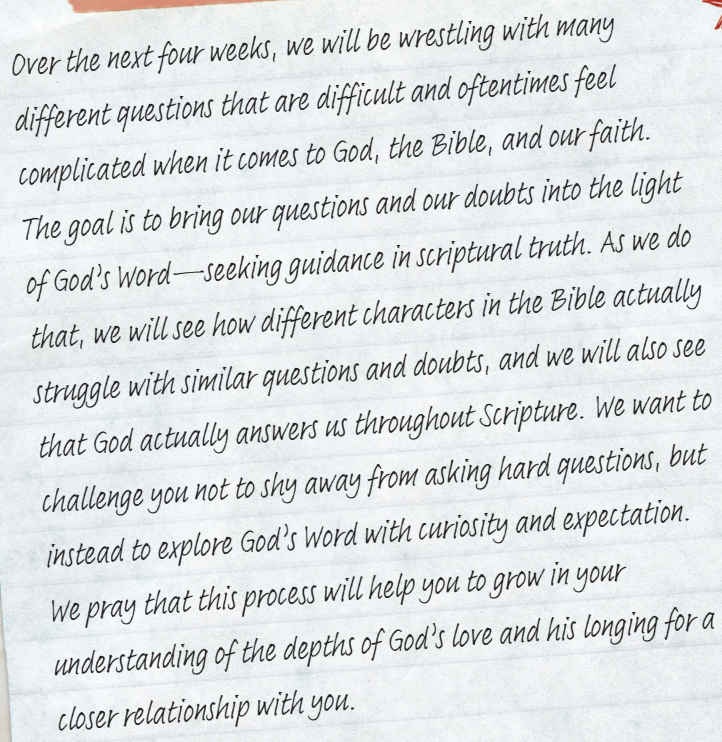 Over the next four weeks, we will be wrestling with many
different questions that are difficult and oftentimes feel
complicated when it comes to God, the Bible, and our faith.
The goal is to bring our questions and our doubts into the light
of God's Word—seeking guidance in scriptural truth. As we do
that, we will see how different characters in the Bible actually
struggle with similar questions and doubts, and we will also see
that God actually answers us throughout Scripture. We want to
challenge you not to shy away from asking hard questions, but
instead to explore God's Word with curiosity and expectation.
We pray that this process will help you to grow in your
understanding of the depths of God's love and his longing for a
closer relationship with you.